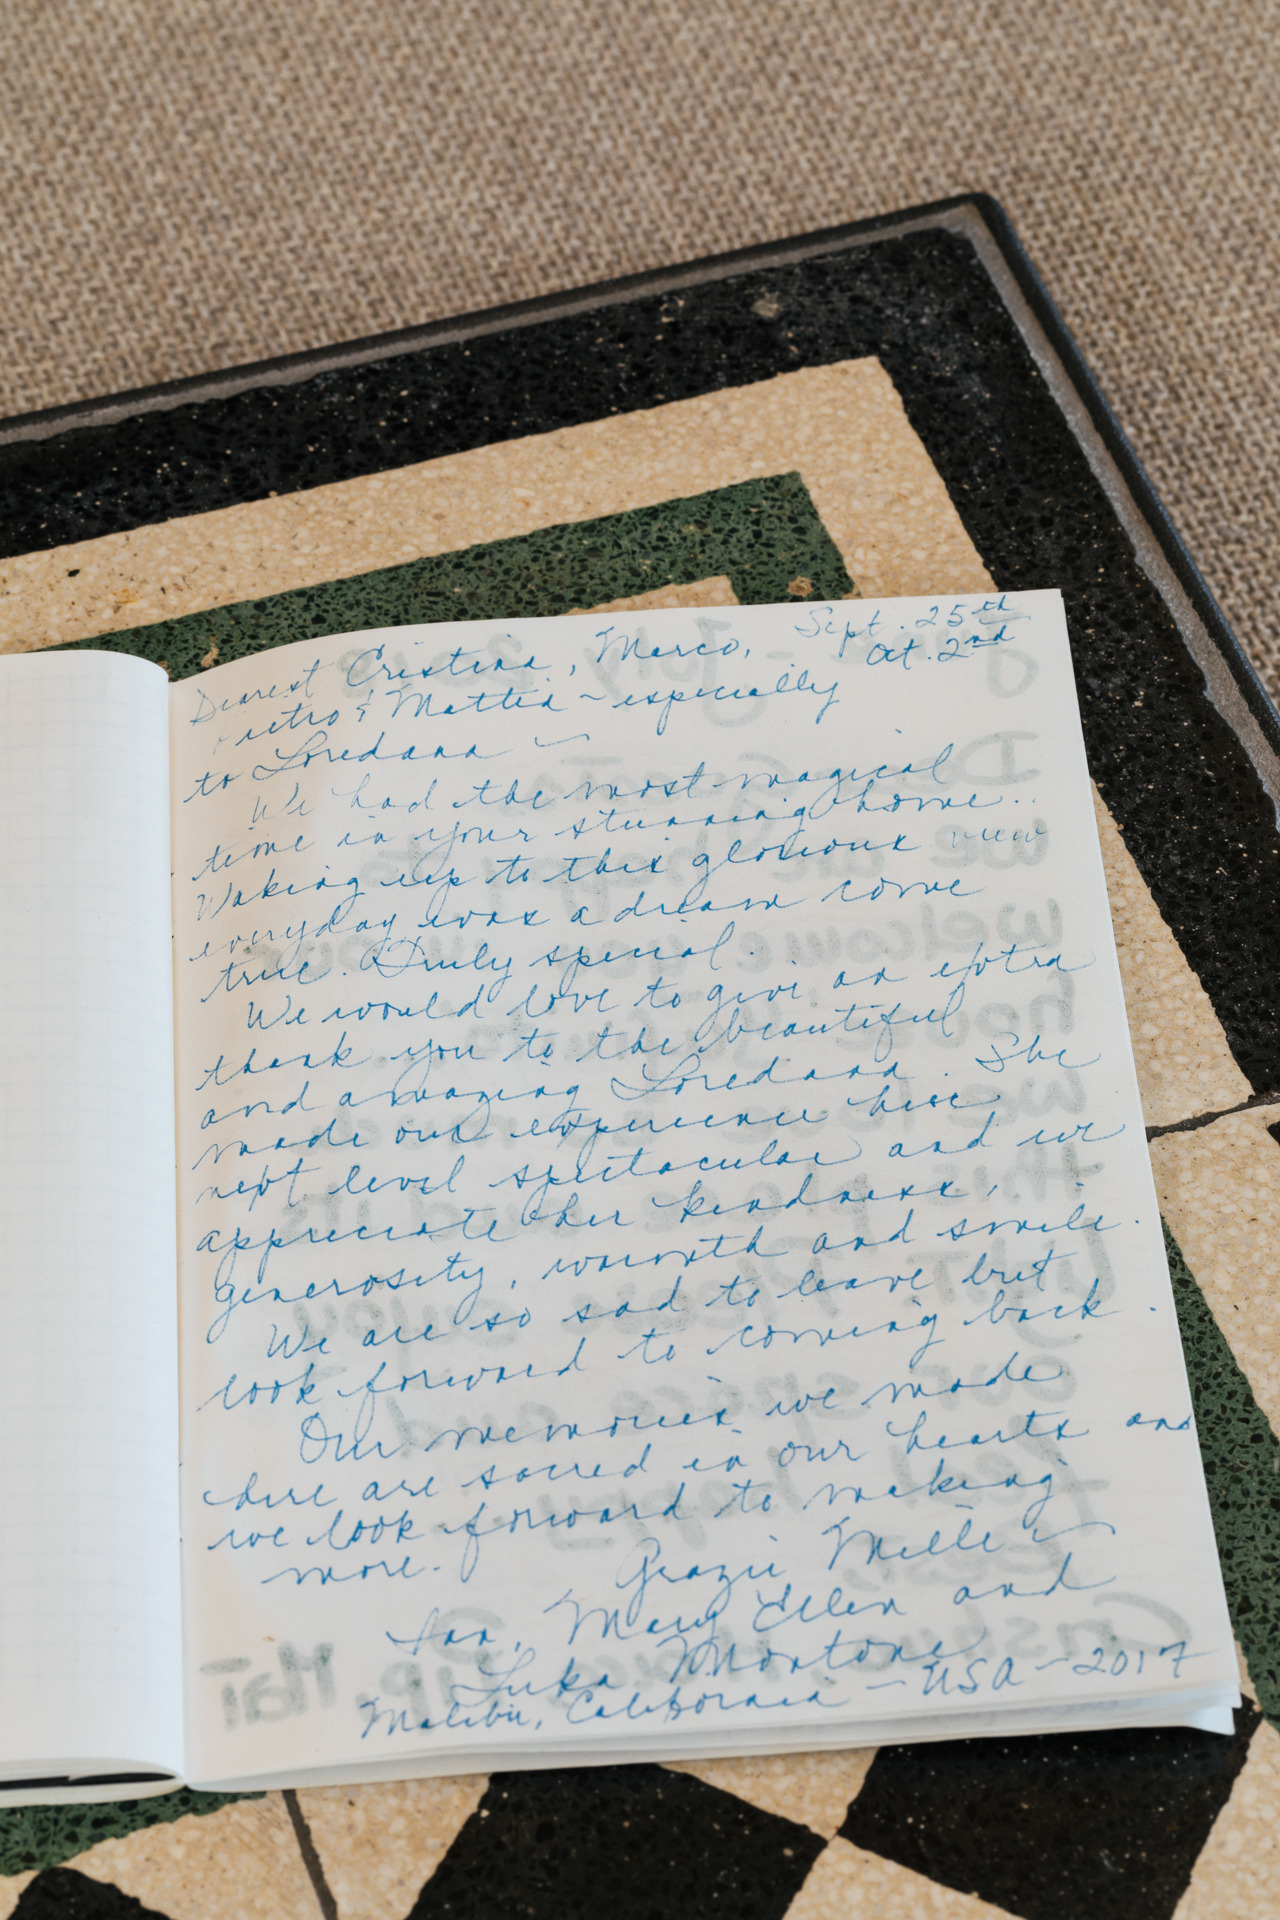 Dearest Cristina, Marco, Sept. 25th
Oct. 2nd
Pietro & Mattia - especially
to Loredana -
We had the most magical
time in your stunning home..
Waking up to this glorious view
everyday was a dream come
true. Truly special.
We would love to give an extra
thank you to the beautiful
and amazing Loredana. She
made our experience here
next level spectacular and we
appreciate her kindness,
generosity, warmth and smile.
We are so sad to leave but
look forward to coming back.
Our memories we made
here are sacred in our hearts and
we look forward to making
more.
Grazie Mille
Ian, Mary Ellen and
Luka Montone
Malibu, California - USA - 2017